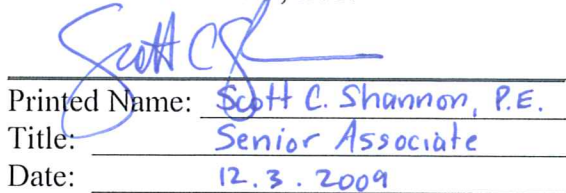 Scott C S
Printed Name: Scott C. Shannon, P.E.
Title: Senior Associate
Date: 12.3.2009